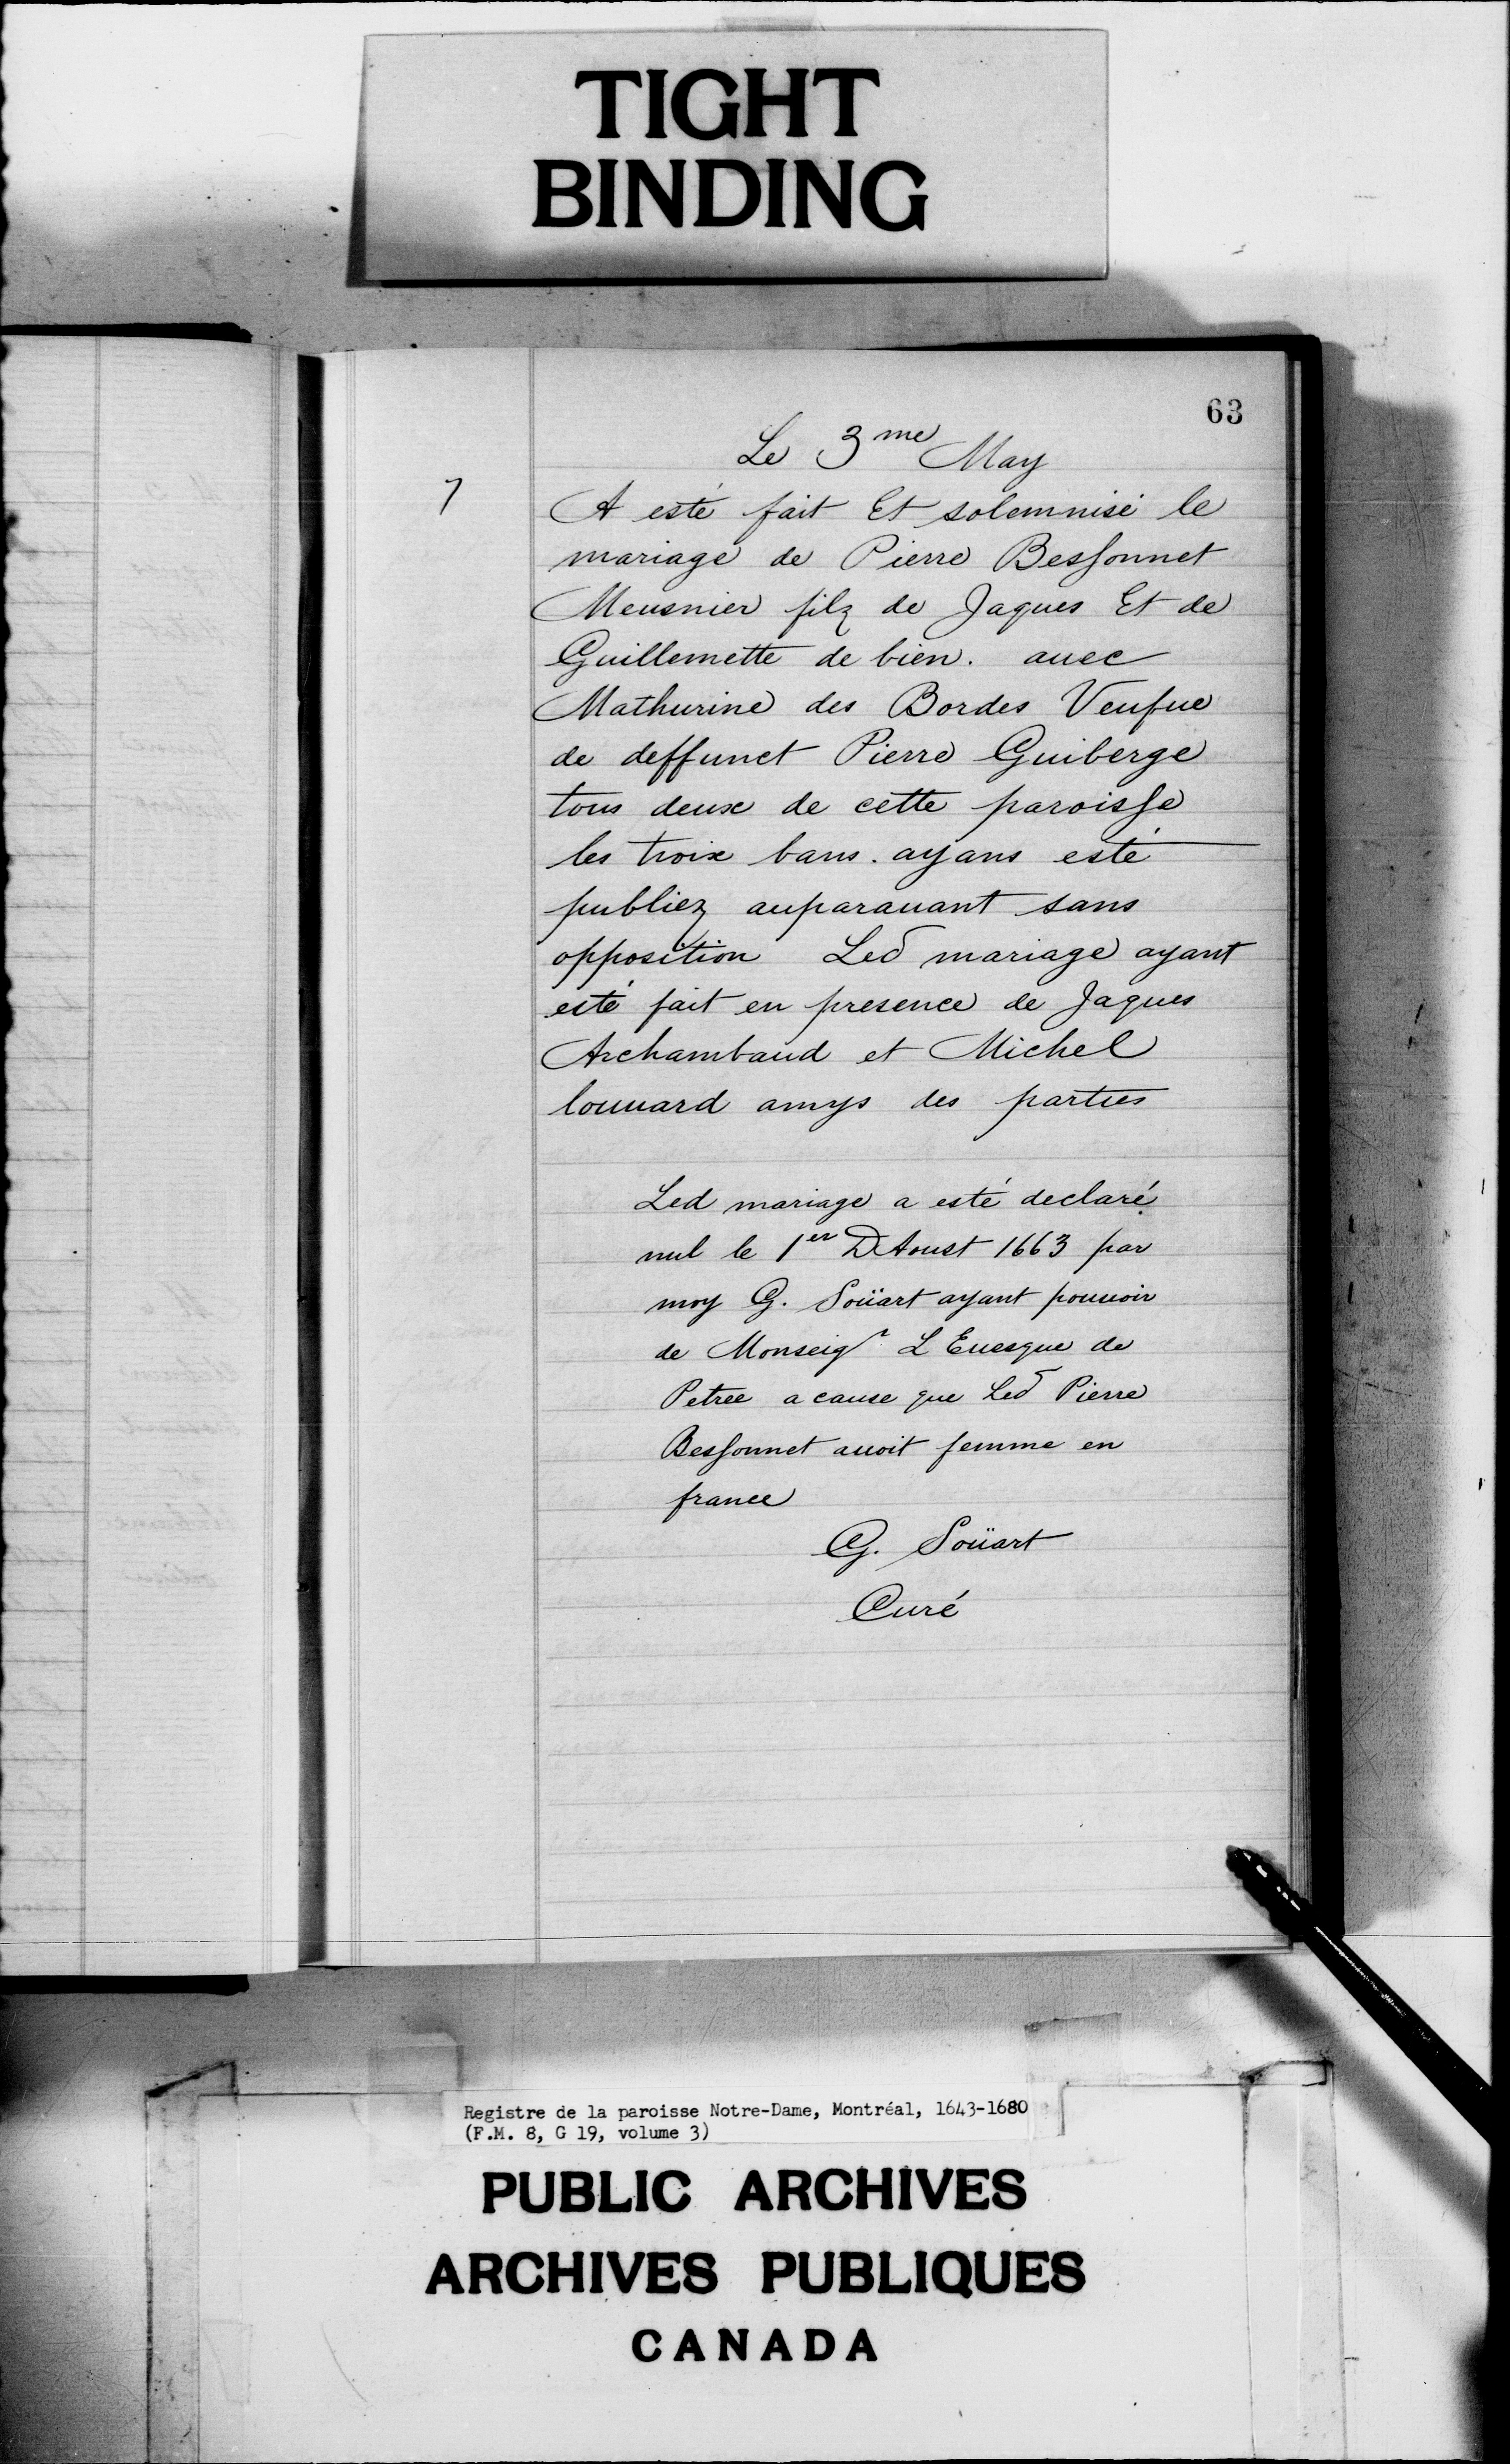 TIGHT
BINDING
63
Le 3me May
7
A esté fait Et solemnisé le
mariage de Pierre Bessonnet
Meusnier filz de Jaques Et de
Guillemette de bien. auec
Mathurine des Bordes Veufue
de deffunct Pierre Guiberge
tous deux de cette paroisse
les troix bans. ayans esté
publiez auparauant sans
opposition Led mariage ayant
esté fait en presence de Jaques
Archambaud et Michel
louuard amys des parties
Led mariage a esté declaré
nul le 1er D Aoust 1663 par
moy G. Soüart ayant pouuoir
de Monseigr L Euesque de
Petree a cause que Led Pierre
Bessonnet auoit femme en
france
G. Soüart
Curé
Registre de la paroisse Notre-Dame, Montréal, 1643-1680
(F.M. 8, G 19, volume 3)
PUBLIC ARCHIVES
ARCHIVES PUBLIQUES
CANADA